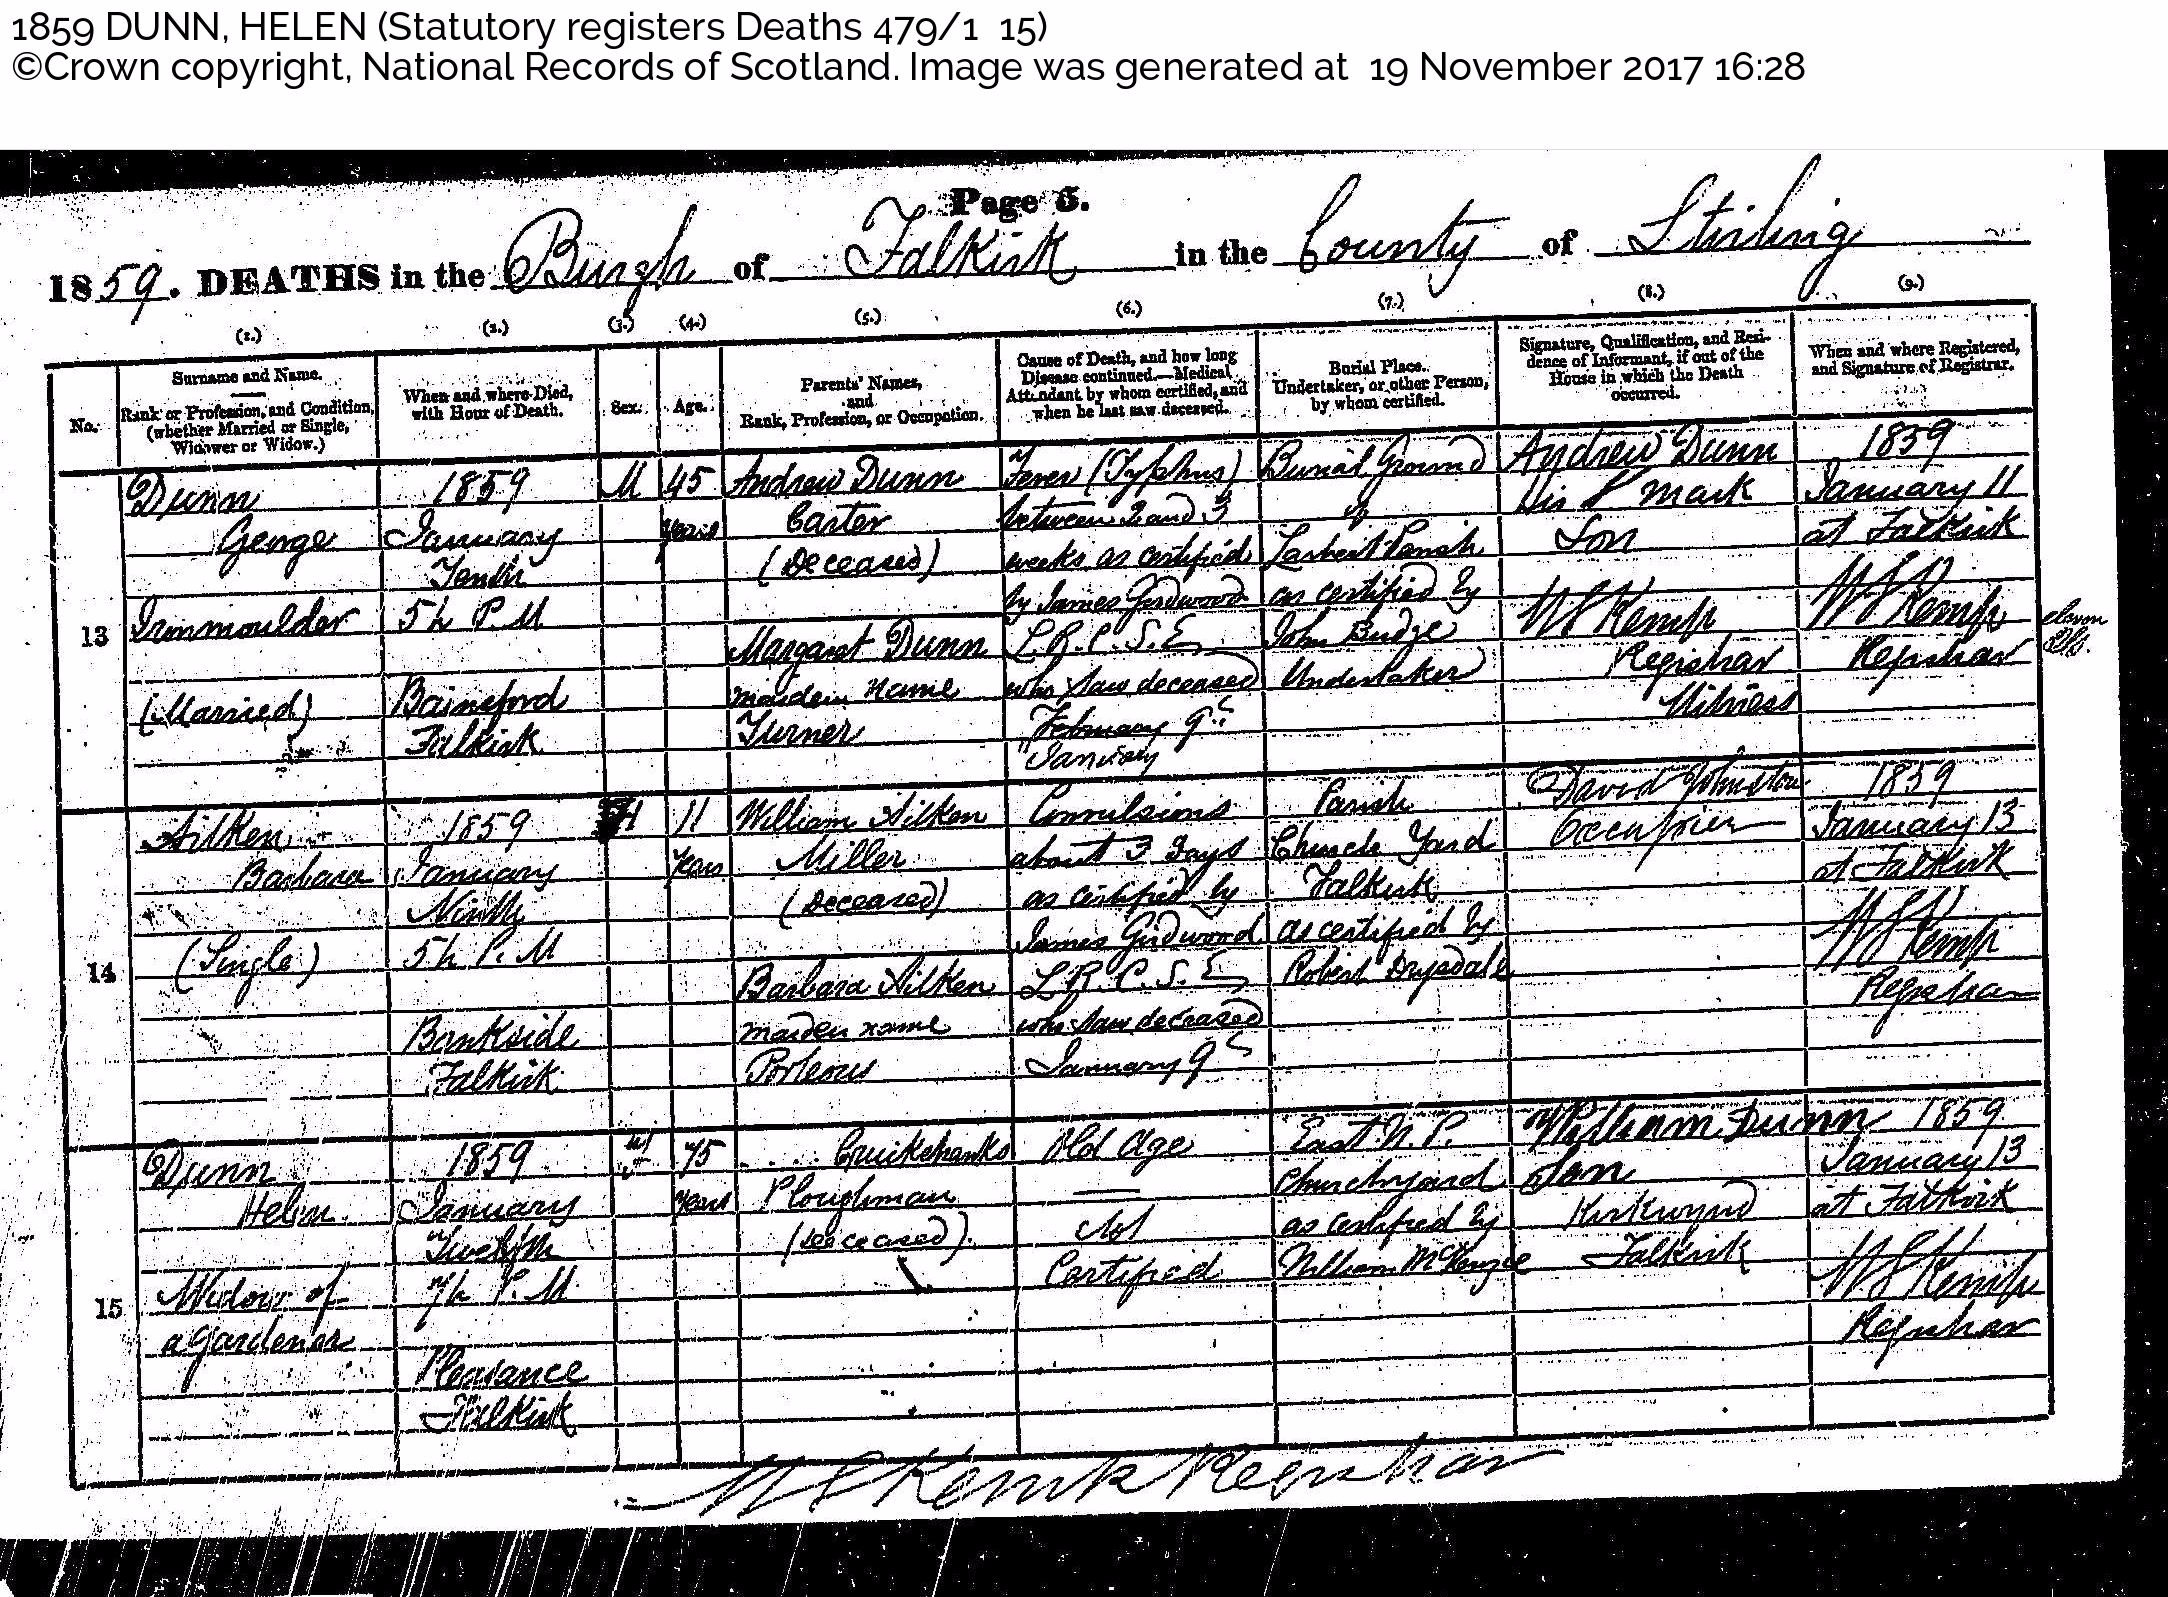 1859 DUNN, HELEN (Statutory registers Deaths 479/1 15)
©Crown copyright, National Records of Scotland. Image was generated at 19 November 2017 16:28
Page 5.
1859. DEATHS in the Burgh of Falkirk in the County of Stirling
(1.) (2.) (3.) (4.) (5.) (6.) (7.) (8.) (9.)
No.
Surname and Name.
Rank or Profession, and Condition,
(whether Married or Single,
Widower or Widow.)
When and where Died,
with Hour of Death.
Sex.
Age.
Parents' Names,
and
Rank, Profession, or Occupation.
Cause of Death, and how long
Disease continued.—Medical
Attendant by whom certified, and
when he last saw deceased.
Burial Place.
Undertaker, or other Person,
by whom certified.
Signature, Qualification, and Resi-
dence of Informant, if out of the
House in which the Death
occurred.
When and where Registered,
and Signature of Registrar.
13
Dunn
George
Ironmoulder
(Married)
1859
January
Tenth
5h P.M
Bainsford
Falkirk
M
45
Years
Andrew Dunn
Carter
(Deceased)
Margaret Dunn
maiden name
Turner
Fever (Typhus)
between 2 and 3
weeks as certified
by James Girdwood
L.R.C.S.E
who saw deceased
February 9th
January
Burial Ground
of
Larbert Parish
as certified by
John Budge
Undertaker
Andrew Dunn
his mark
Son
W S Kemp
Registrar
Witness
1859
January 11
at Falkirk
W S Kemp
Registrar
14
Aitken
Barbara
(Single)
1859
January
Ninth
5h P.M
Bankside
Falkirk
11
Years
William Aitken
Miller
(Deceased)
Barbara Aitken
maiden name
Porteous
Convulsions
about 3 days
as certified by
James Girdwood
L.R.C.S.E
who saw deceased
January 9th
Parish
Church Yard
Falkirk
as certified by
Robert Drysdale
David Johnston
Occupier
1859
January 13
at Falkirk
W S Kemp
Registrar
15
Dunn
Helen
Widow of
a Gardener
1859
January
Twelfth
7h P.M
Pleasance
Falkirk
75
Years
.... Cruikshanks
Ploughman
(deceased)
Old Age
Not
Certified
East U.P.
Churchyard
as certified by
William McKenzie
William Dunn
Son
Kirkwynd
Falkirk
1859
January 13
at Falkirk
W S Kemp
Registrar
W S Kemp Registrar